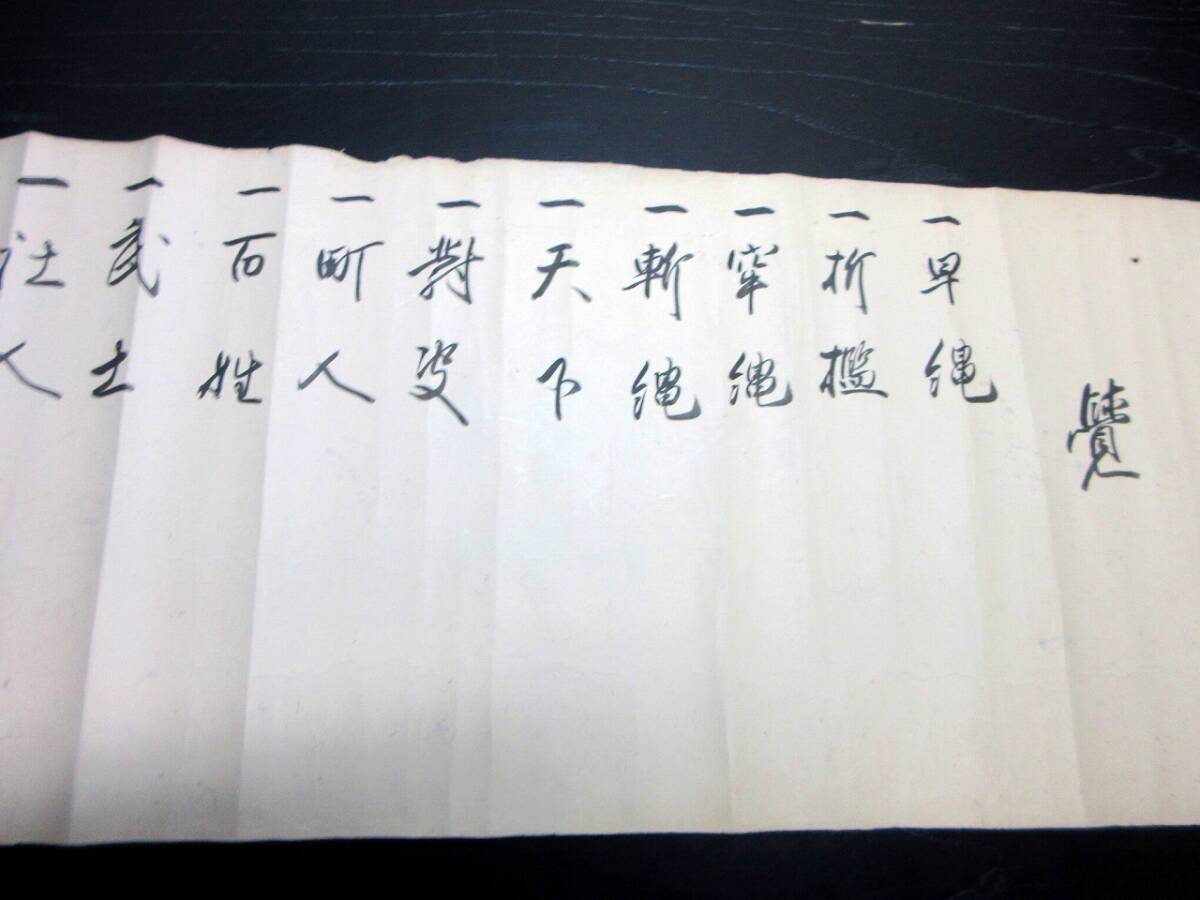 覺
一早縄
一折檻
一窂縄
一斬縄
一天下
一對叟
一町人
一百姓
一武士
一社人